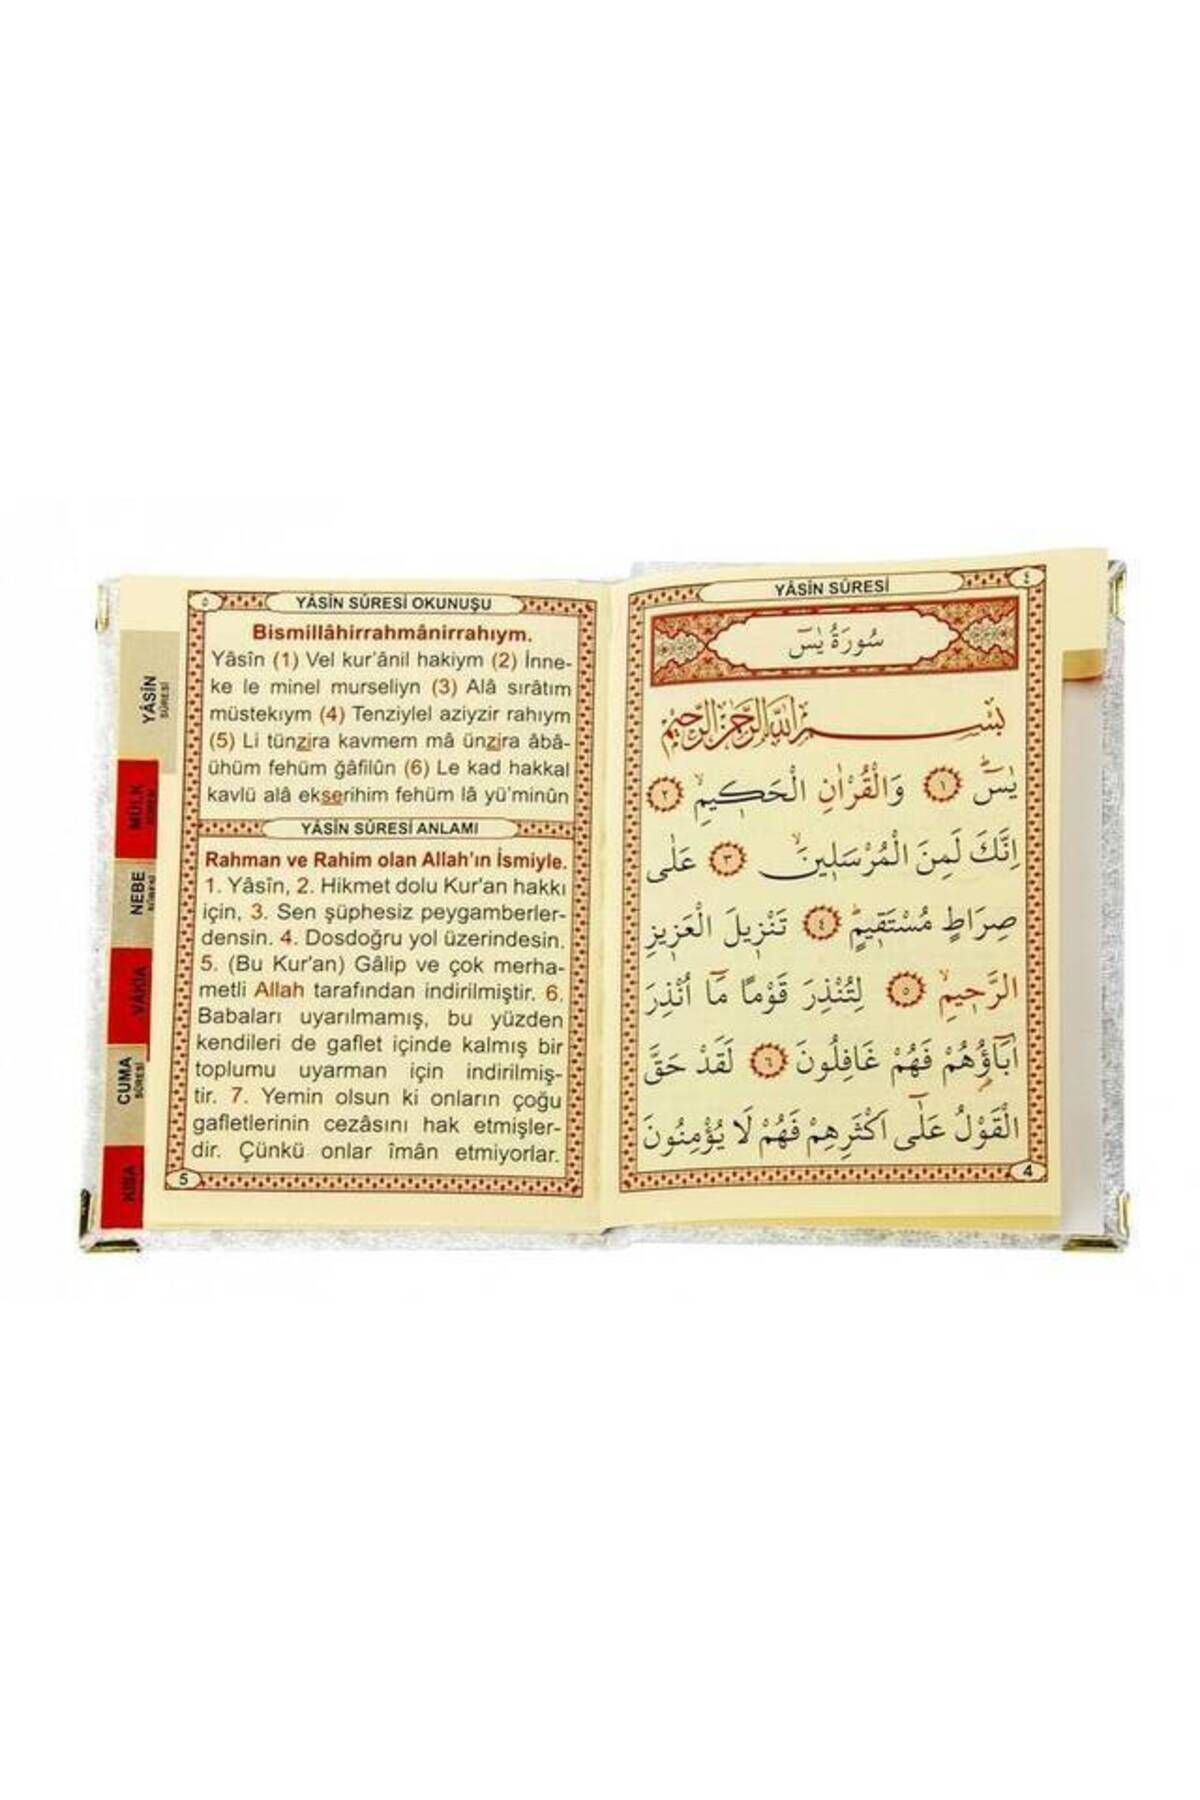 YÂSİN SÛRESİ
٤
سُورَةُ يٰسٓ
بِسْمِ اللّٰهِ الرَّحْمٰنِ الرَّحِيمِ
يٰسٓ ۚ ﴿١﴾ وَالْقُرْاٰنِ الْحَك۪يمِۙ ﴿٢﴾
اِنَّكَ لَمِنَ الْمُرْسَل۪ينَۙ ﴿٣﴾ عَلٰى
صِرَاطٍ مُسْتَق۪يمٍۜ ﴿٤﴾ تَنْز۪يلَ الْعَز۪يزِ
الرَّح۪يمِۙ ﴿٥﴾ لِتُنْذِرَ قَوْمًا مَٓا اُنْذِرَ
اٰبَٓاؤُ۬هُمْ فَهُمْ غَافِلُونَ ﴿٦﴾ لَقَدْ حَقَّ
الْقَوْلُ عَلٰٓى اَكْثَرِهِمْ فَهُمْ لَا يُؤْمِنُونَ
4
٥
YÂSİN SÛRESİ OKUNUŞU
Bismillâhirrahmânirrahıym.
Yâsîn (1) Vel kur'ânil hakiym (2) İnne-
ke le minel murseliyn (3) Alâ sırâtım
müstekıym (4) Tenziylel aziyzir rahıym
(5) Li tünzira kavmem mâ ünzira âbâ-
ühüm fehüm ğâfilûn (6) Le kad hakkal
kavlü alâ ekserihim fehüm lâ yü'minûn
YÂSİN SÛRESİ ANLAMI
Rahman ve Rahim olan Allah'ın İsmiyle.
1. Yâsîn, 2. Hikmet dolu Kur'an hakkı
için, 3. Sen şüphesiz peygamberler-
densin. 4. Dosdoğru yol üzerindesin.
5. (Bu Kur'an) Gâlip ve çok merha-
metli Allah tarafından indirilmiştir. 6.
Babaları uyarılmamış, bu yüzden
kendileri de gaflet içinde kalmış bir
toplumu uyarman için indirilmiş-
tir. 7. Yemin olsun ki onların çoğu
gafletlerinin cezâsını hak etmişler-
dir. Çünkü onlar îmân etmiyorlar.
5
YÂSİN
SÛRESİ
MÜLK
NEBE
VÂKIA
CUMA
SÛRESİ
KISA